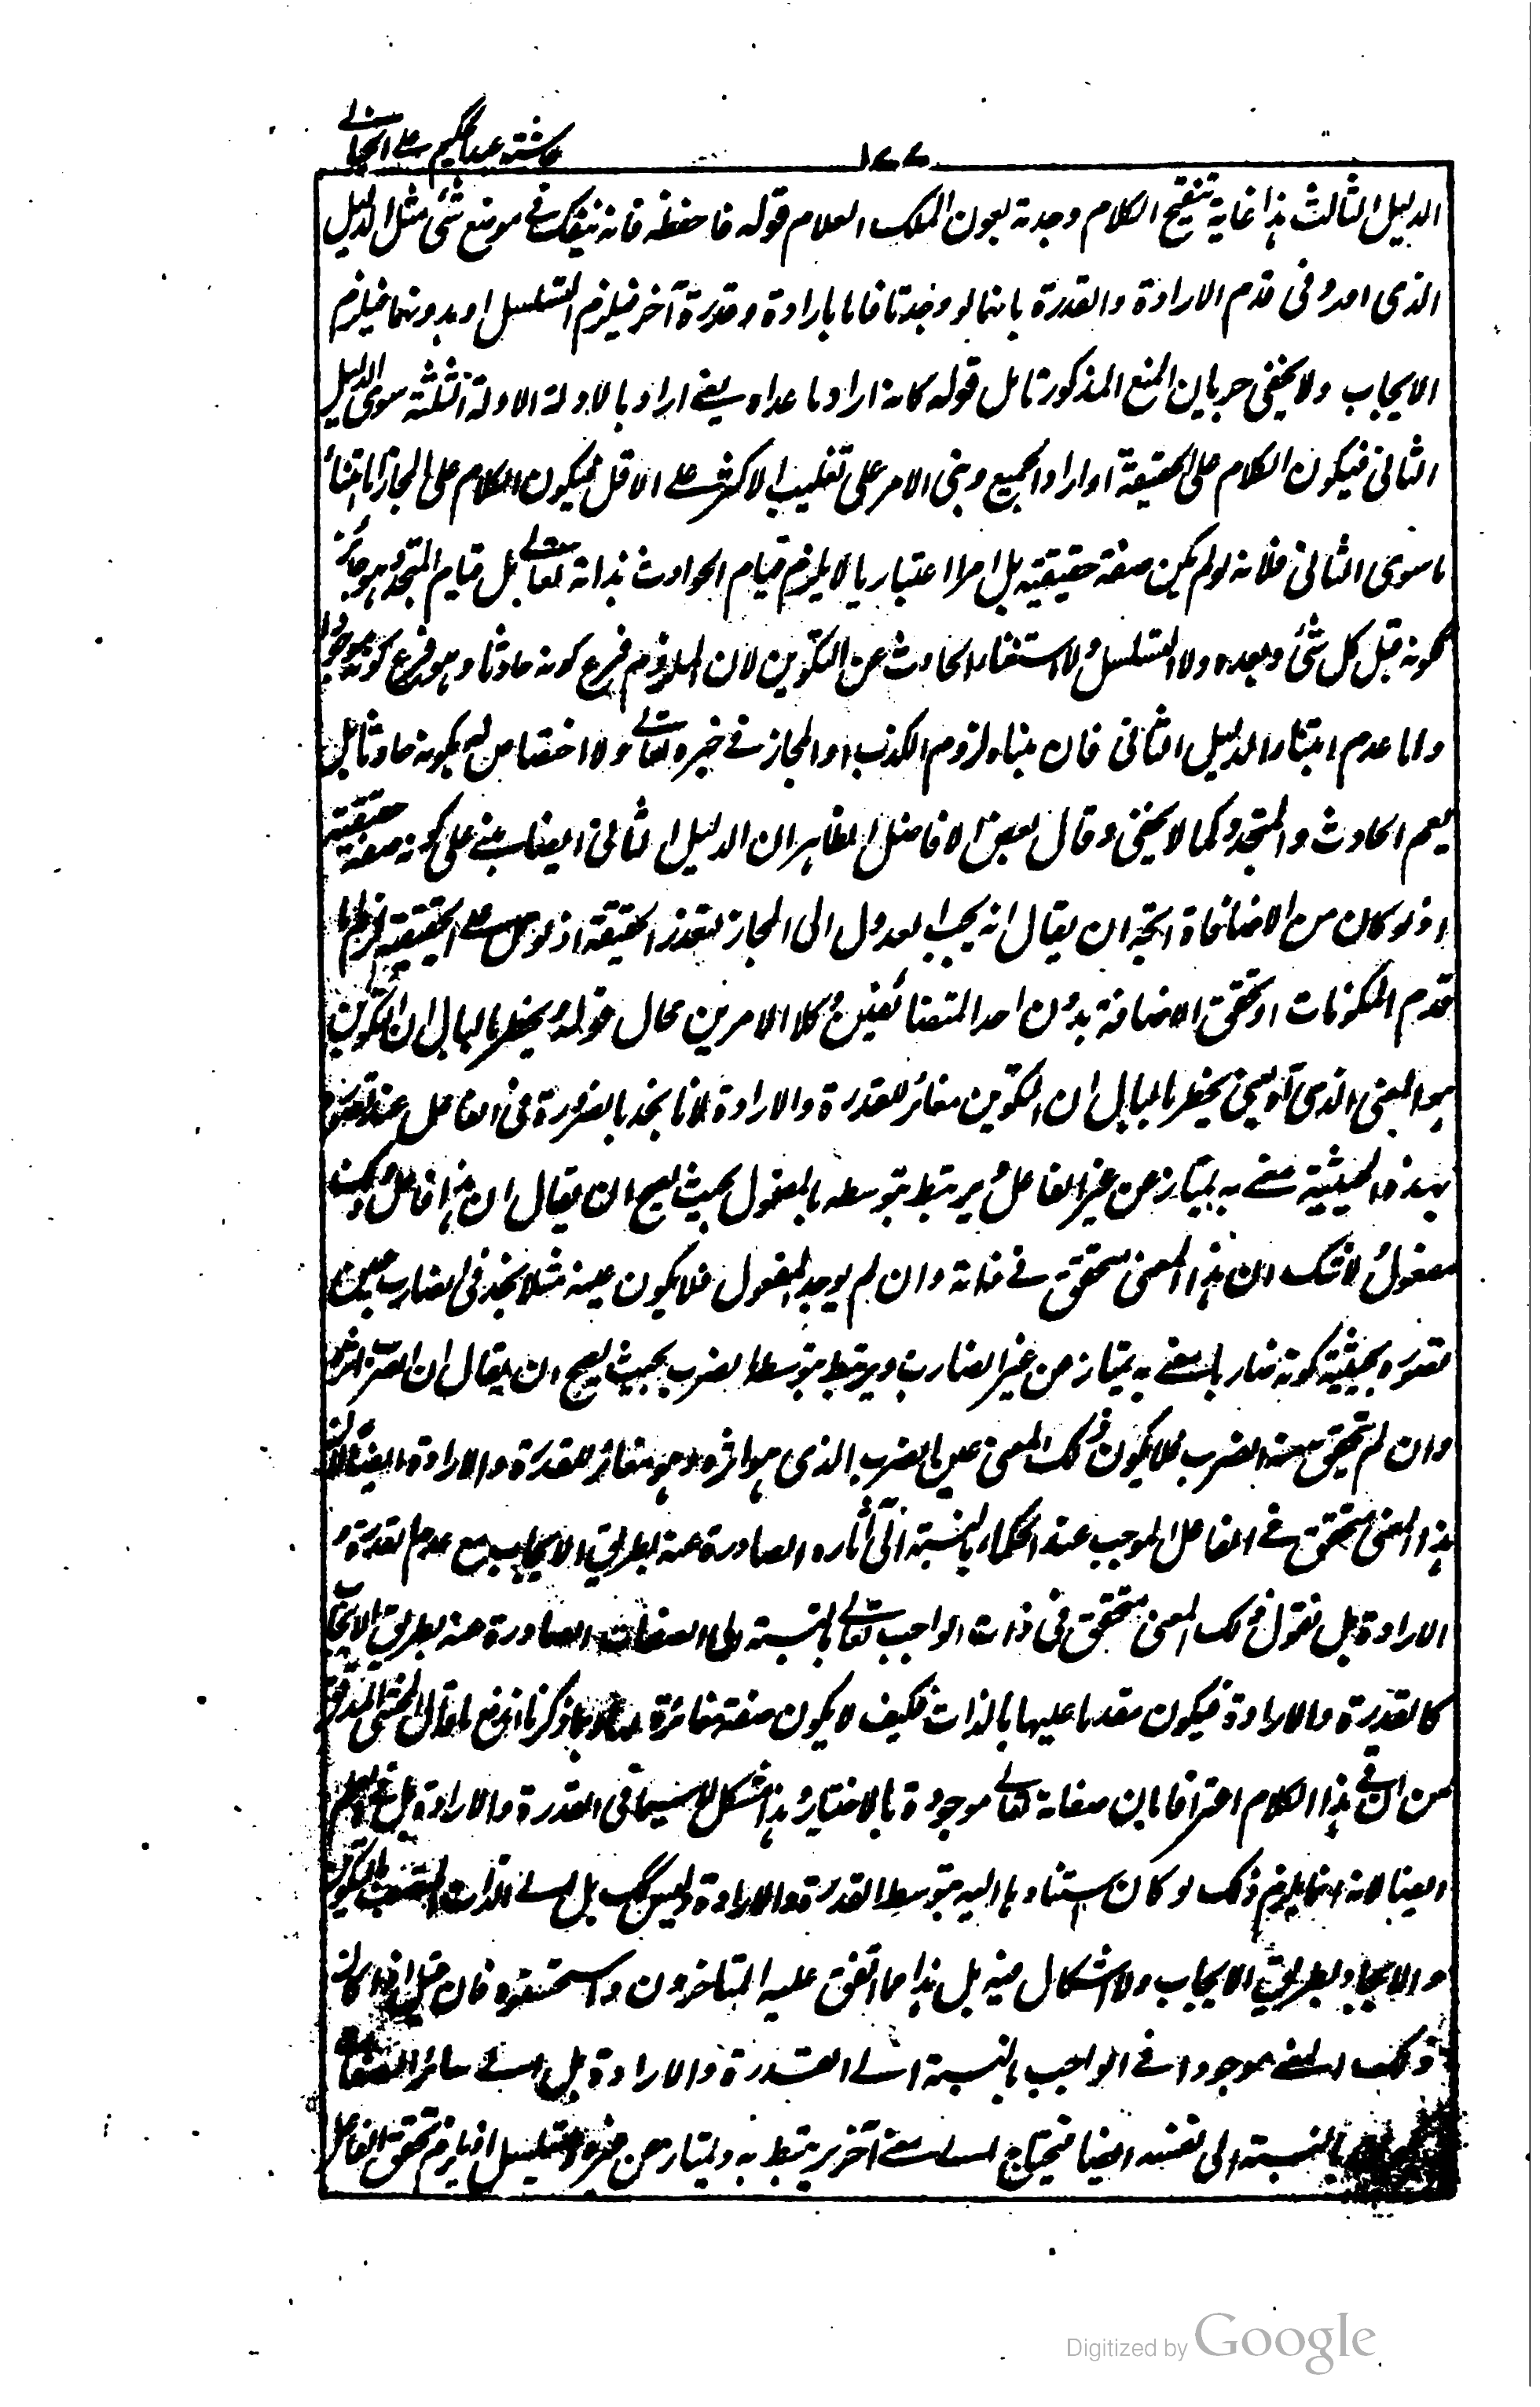 حاشیة عبدالحکیم علے الخیالے
۱۷۷
الدلیل الثالث ہذا غایة تنقیح الکلام وجدتہ بعون الملک العلام قولہ فاحفظہ فانہ ینفعک فے موضع شئی مثل الدلیل
الذی اوردہ فی قدم الارادة والقدرة بانہما لو وجدتا فاما بارادة وقدرة آخر فیلزم التسلسل او بدونہما فیلزم
الایجاب ولا یخفی جریان المنع المذکور تامل قولہ کانہ اراد ما عداہ یعنے اراد بالادلة الادلة الثلثة سوی الدلیل
الثانی فیکون الکلام علی الحقیقة او اراد الجمیع وبنی الامر علی تغلیب الاکثر علے الاقل فیکون الکلام علی المجاز اما ابتناء
ما سوی الثانی فلانہ لو لم یکن صفة حقیقیة بل امرا اعتباریا لا یلزم قیام الحوادث بذاتہ تعالے بل قیام المتجدد وہو جائز
ککونہ قبل کل شئی وبعدہ ولا التسلسل ولا استغناء الحادث عن التکوین لان اللازم فرع کونہ حادثا وہو فرع کونہ موجودا
واما عدم ابتناء الدلیل الثانی فان مبناہ لزوم الکذب او المجاز فے خبرہ تعالے ولا اختصاص لہ بکونہ حادثا بل
یعم الحادث والمتجدد کما لا یخفی وقال بعض الافاضل الظاہر ان الدلیل الثانی ایضا مبنے علی کونہ صفة حقیقیة
اذ لو کان من الاضافاة اتجہ ان یقال انہ یجب العدول الی المجاز لتعذر الحقیقة اذ لو حمل علے الحقیقة لزم اما
قدم المکونات او تحقق الاضافة بدون احد المتضائفین وکلا الامرین محال قولہ ویخطر بالبال ان التکوین
ہو المعنی الذی آہ یعنی یخطر بالبال ان التکوین مغائر للقدرة والارادة لانا نجد بالضرورة فی الفاعل عند تصورہ
بہذہ الحیثیة معنے بہ یمتاز عن غیر الفاعل ویرتبط بتوسطہ بالمفعول بحیث یصح ان یقال ان ہذا فاعل وذلک
مفعول ولا شک ان ہذا المعنی متحقق فے ذاتہ وان لم یوجد المفعول فلا یکون عینہ مثلا نجد فی الضارب حین
تصورہ بحیثیة کونہ ضاربا معنے بہ یمتاز عن غیر الضارب ویرتبط بتوسطہ الضرب بحیث یصح ان یقال ان الضرب اثرہ
وان لم یتحقق منہ الضرب فلا یکون ذلک المعنی عین الضرب الذی ہو اثرہ وہو مغائر للقدرة والارادة ایضا لان
ہذا المعنی متحقق فے الفاعل الموجب عند الحکماء بالنسبة الی آثارہ الصادرة عنہ بطریق الایجاب مع عدم القدرة و
الارادة بل نقول ذلک المعنی متحقق فی ذات الواجب تعالے بالنسبة الی الصفات الصادرة عنہ بطریق الایجاب
کالقدرة والارادة فیکون مقدما علیہا بالذات فکیف لا یکون صفة مغائرة لہا وبما ذکرنا اندفع ما قال المحشی المدقق
من ان فے ہذا الکلام اعترافا بان صفاتہ تعالے موجودة بالاختیار وہذا مشکل لا سیما فی القدرة والارادة بل فے العلم
ایضا لانہ انما یلزم ذلک لو کان استنادہا الیہ بتوسط القدرة والارادة ولیس کذلک بل الے الذات المتصف بالتکوین
والایجاد بطریق الایجاب ولا اشکال فیہ بل ہذا مما اتفق علیہ المتاخرون واستحسنوہ فان قیل اذا کان
ذلک المعنے موجودا فے الواجب بالنسبة الے القدرة والارادة بل الے سائر الصفات
بالنسبة الی نفسہ ایضا فیحتاج الے معنے آخر یرتبط بہ ویمتاز عن غیرہ فیتسلسل اذ یلزم تحقق الفاعل